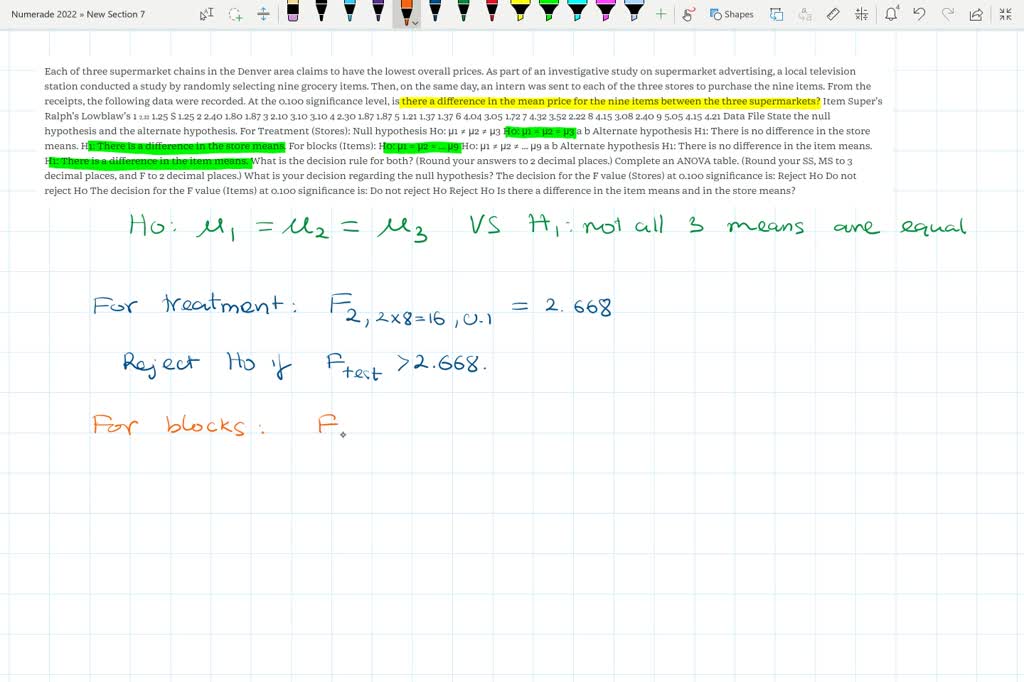 Numerade 2022 » New Section 7
Shapes
Each of three supermarket chains in the Denver area claims to have the lowest overall prices. As part of an investigative study on supermarket advertising, a local television
station conducted a study by randomly selecting nine grocery items. Then, on the same day, an intern was sent to each of the three stores to purchase the nine items. From the
receipts, the following data were recorded. At the 0.100 significance level, is there a difference in the mean price for the nine items between the three supermarkets? Item Super's
Ralph's Lowblaw's 1 1.25 S 1.25 2 2.40 1.80 1.87 3 2.10 3.10 3.10 4 2.30 1.87 1.87 5 1.21 1.37 1.37 6 4.04 3.05 1.72 7 4.32 3.52 2.22 8 4.15 3.08 2.40 9 5.05 4.15 4.21 Data File State the null
hypothesis and the alternate hypothesis. For Treatment (Stores): Null hypothesis Ho: μ1 ≠ μ2 ≠ μ3 Ho: μ1 = μ2 = μ3 a b Alternate hypothesis H1: There is no difference in the store
means. H1: There is a difference in the store means. For blocks (Items): Ho: μ1 = μ2 = ... μ9 Ho: μ1 ≠ μ2 ≠ ... μ9 a b Alternate hypothesis H1: There is no difference in the item means.
H1: There is a difference in the item means. What is the decision rule for both? (Round your answers to 2 decimal places.) Complete an ANOVA table. (Round your SS, MS to 3
decimal places, and F to 2 decimal places.) What is your decision regarding the null hypothesis? The decision for the F value (Stores) at 0.100 significance is: Reject Ho Do not
reject Ho The decision for the F value (Items) at 0.100 significance is: Do not reject Ho Reject Ho Is there a difference in the item means and in the store means?
Ho: μ1 = μ2 = μ3 VS H1: not all 3 means are equal
For treatment: F2, 2x8=16, 0.1 = 2.668
Reject Ho if Ftest >2.668.
For blocks: F